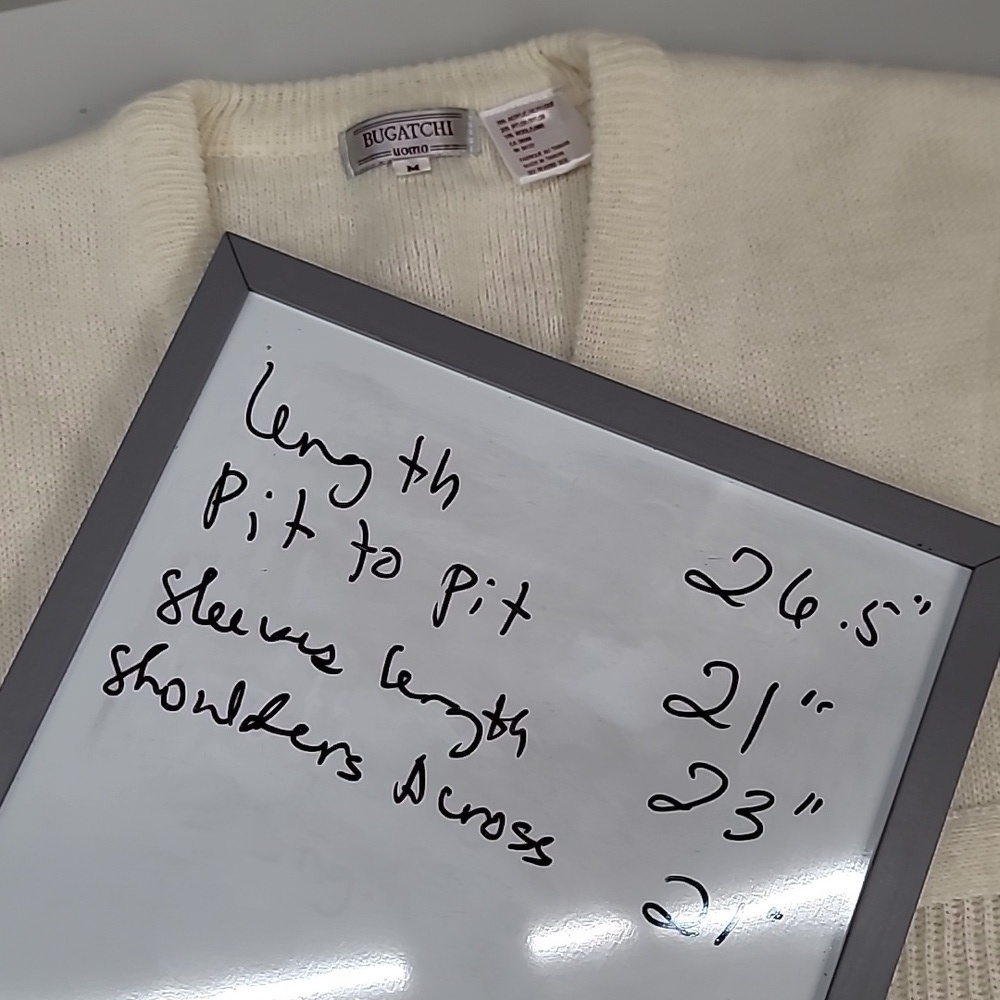 BUGATCHI
uomo
M
length 26.5"
Pit to Pit 21"
Sleeves length 23"
Shoulders Across 21"